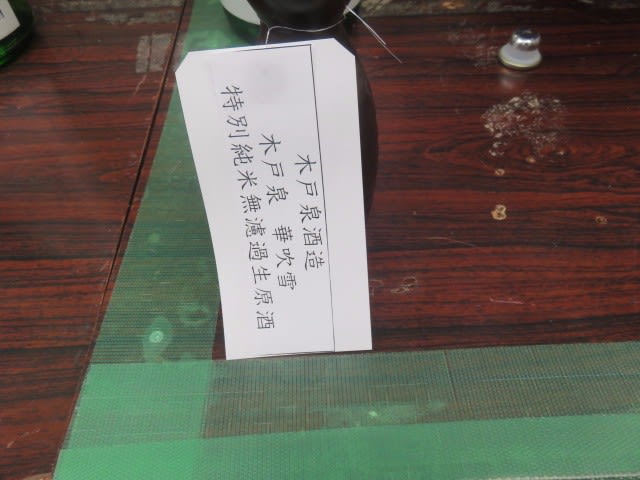 木戸泉酒造
木戸泉 華吹雪
特別純米無濾過生原酒